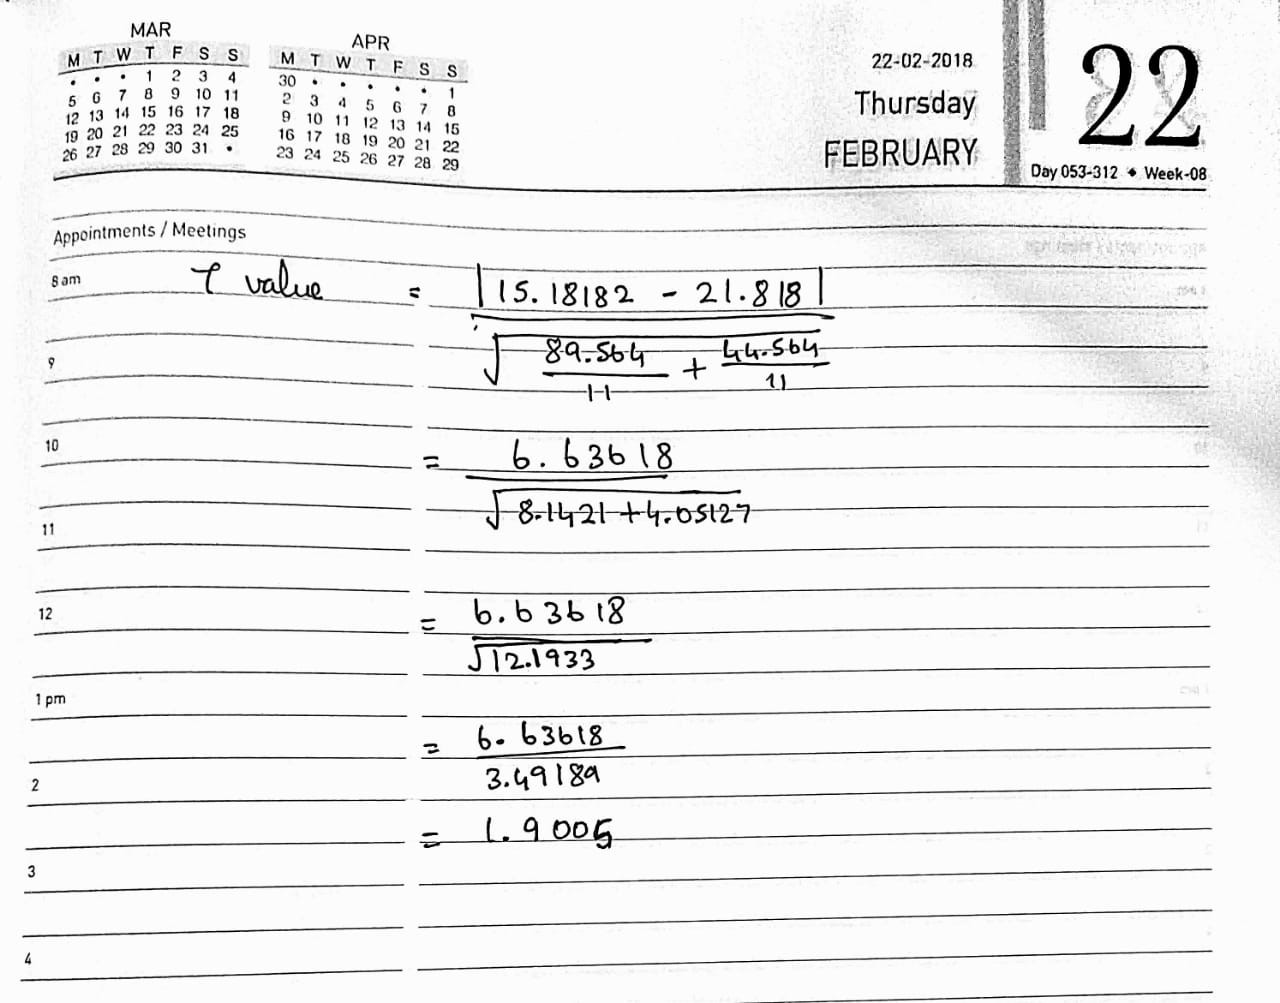 MAR
M T W T F S S
• • • 1 2 3 4
5 6 7 8 9 10 11
12 13 14 15 16 17 18
19 20 21 22 23 24 25
26 27 28 29 30 31 •
APR
M T W T F S S
30 • • • • • 1
2 3 4 5 6 7 8
9 10 11 12 13 14 15
16 17 18 19 20 21 22
23 24 25 26 27 28 29
22-02-2018
Thursday
FEBRUARY
22
Day 053-312 • Week-08
Appointments / Meetings
8 am
T value = |15.18182 - 21.818|
√ 89.564 + 44.564
9
11 11
10
= 6.63618
√8.1421 + 4.05127
11
12
= 6.63618
√12.1933
1 pm
= 6.63618
2
3.49189
= 1.9005
3
4